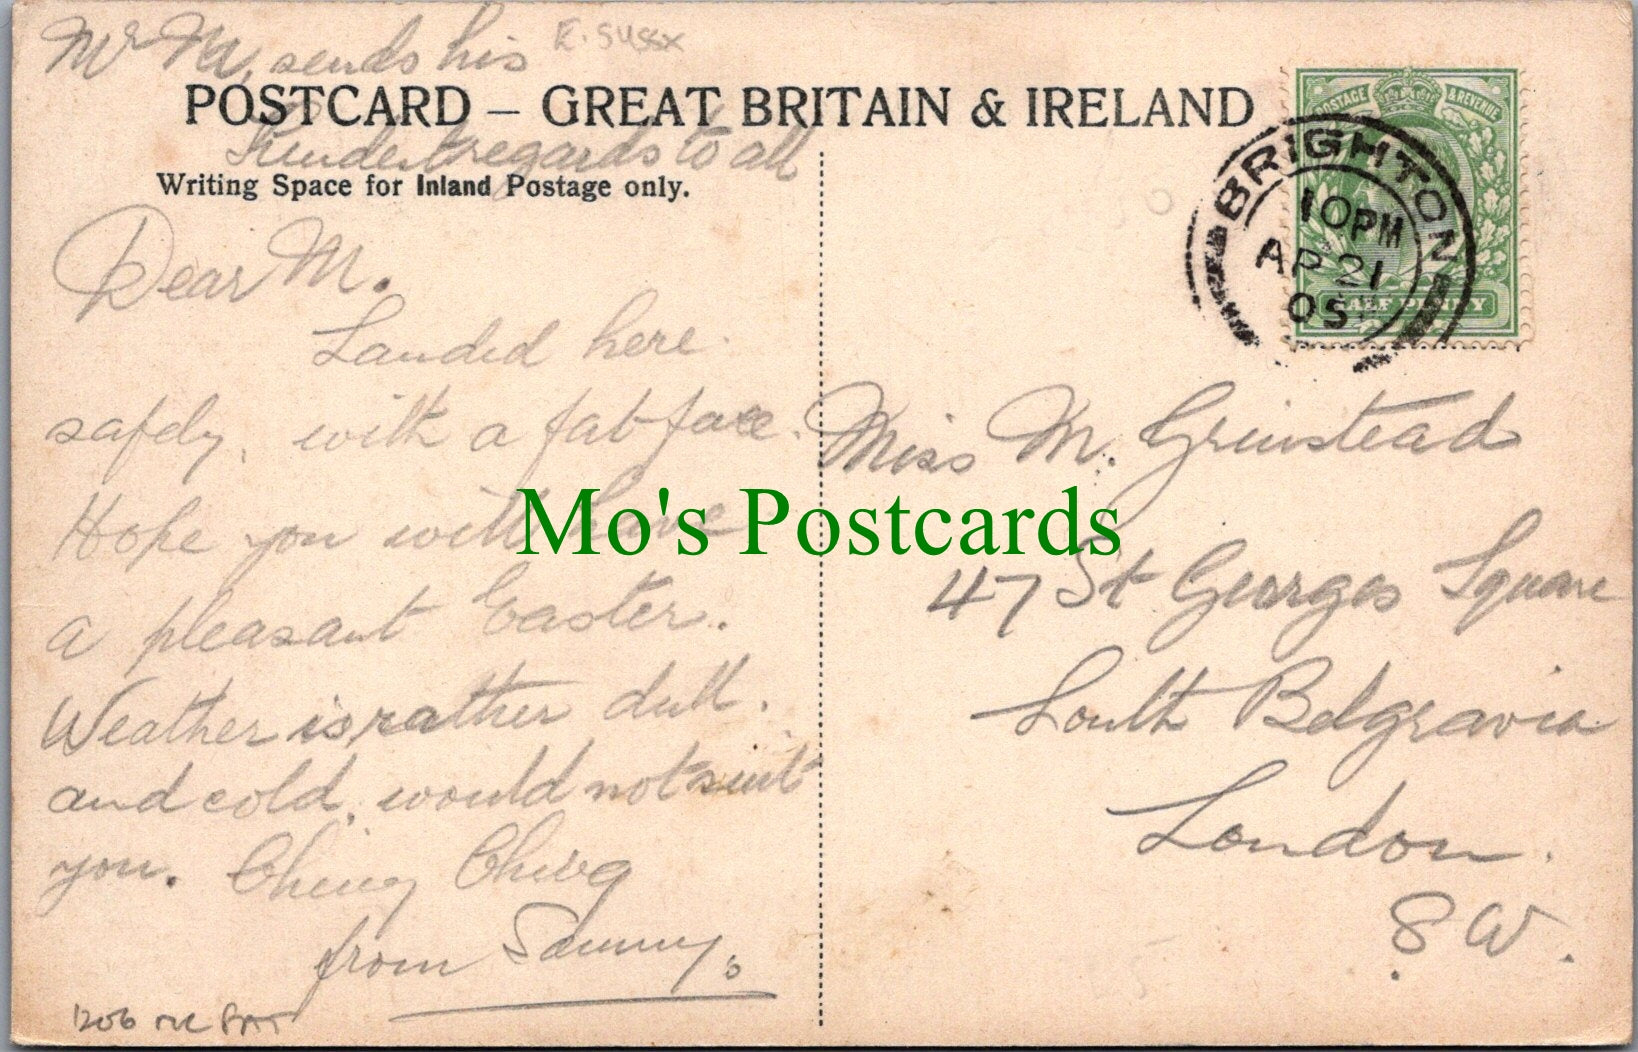 Mr M. sends his
E. Sussx
POSTCARD – GREAT BRITAIN & IRELAND
Kindest regards to all
Writing Space for Inland Postage only.
Dear M.
Landed here
safely, with a fat face.
Hope you will have
a pleasant Easter.
Weather is rather dull.
and cold, would not suit
you. Ching Ching
from Sammy.
1206
POSTAGE & REVENUE
HALF PENNY
BRIGHTON
10 PM
AP 21
05
Miss M. Grinstead
47 St Georges Square
South Belgravia
London.
S W.
Mo's Postcards